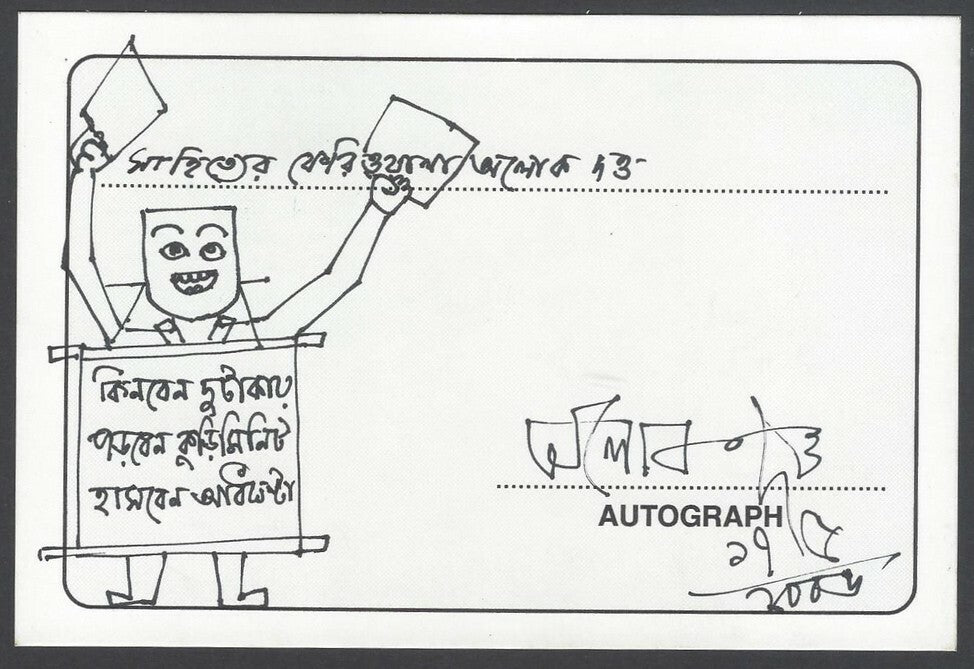 সাহিত্যের ফেরিওয়ালা অলোক দত্ত
কিনবেন দুটাকায়
পড়বেন কুড়িমিনিট
হাসবেন আধঘন্টা
অলোক দত্ত
AUTOGRAPH
১৭/৫